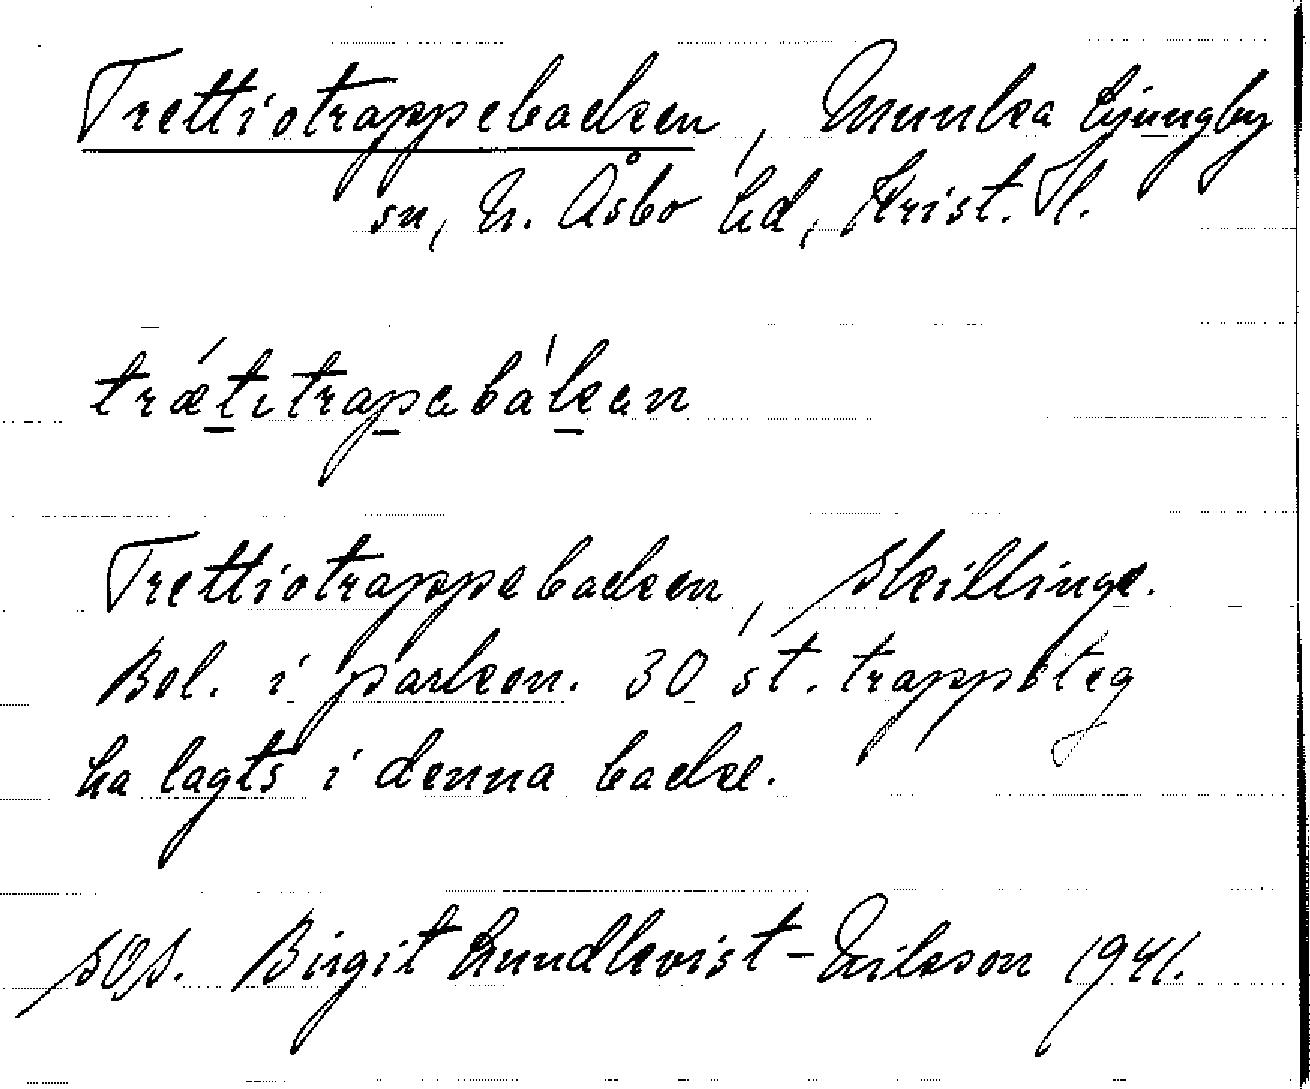 Trettiotrappebacken, Munka Ljungby
sn, N. Åsbo hd, Krist. l.
trǽtitrapebáken
Trettiotrappebacken, Skillinge.
Bel. i parken. 30 st. trappsteg
ha lagts i denna backe.
SOS. Birgit Lundkvist-Nilsson 1941.